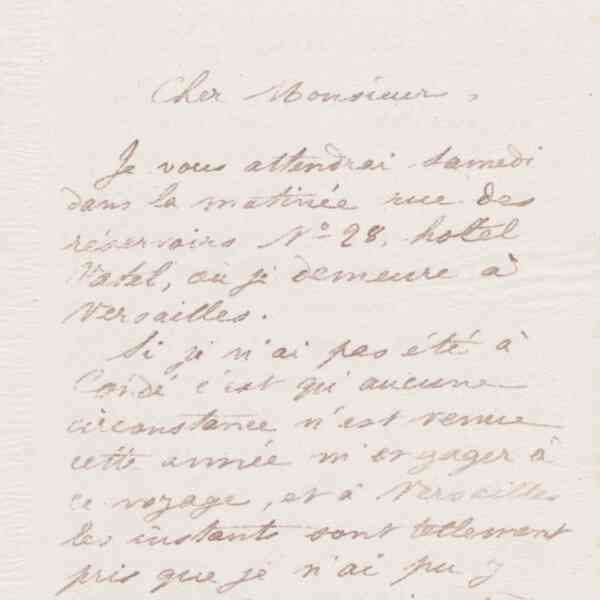 Cher Monsieur,
Je vous attendrai samedi
dans la matinée rue des
réservoirs No 28, hotel
Vatel, où je demeure à
Versailles.
Si je n'ai pas été à
Condé c'est qu'aucune
circonstance n'est venue
cette année m'engager à
ce voyage, et à Versailles
les instants sont tellement
pris que je n'ai pu y